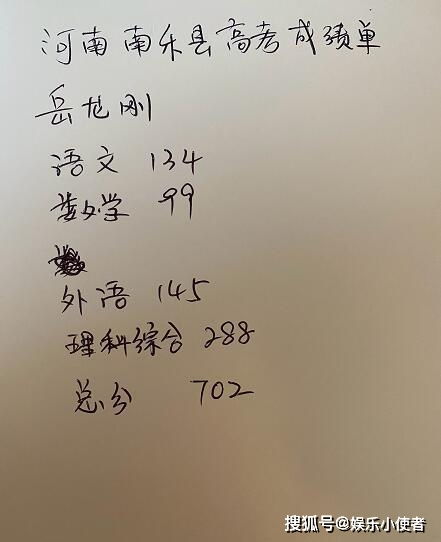 河南南乐县高考成绩单
岳龙刚
语文 134
数学 99
外语 145
理科综合 288
总分 702
搜狐号@娱乐小使者